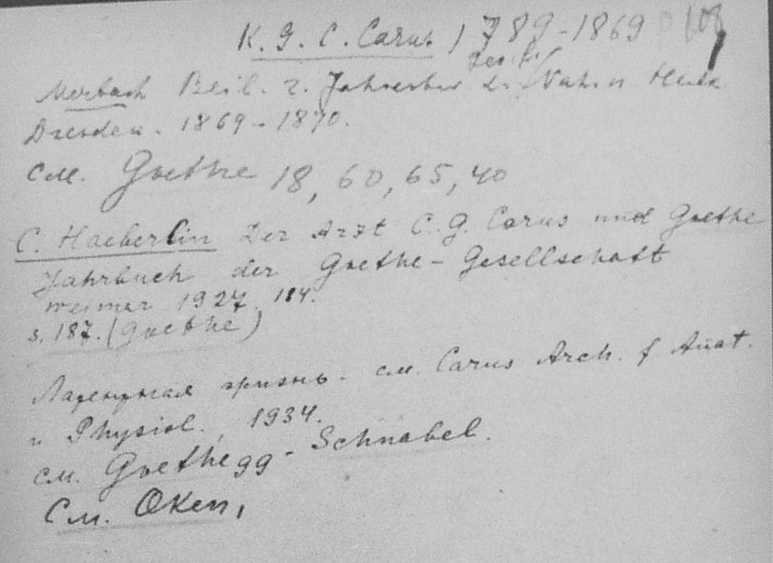 K. G. C. Carus 1789-1869
Merbach Beil. z. Jahresber d.
Dresden. 1869-1870.
см. Goethe 18, 60, 65, 40
C. Haeberlin Der Arzt C. G. Carus und Goethe
Jahrbuch der Goethe-Gesellschaft
Weimar 1927, 184.
s. 187. (Goethe)
жизнь - см. Carus Arch. f Anat.
u Physiol., 1934.
см. Goethe gg - Schnabel.
См. Oken,